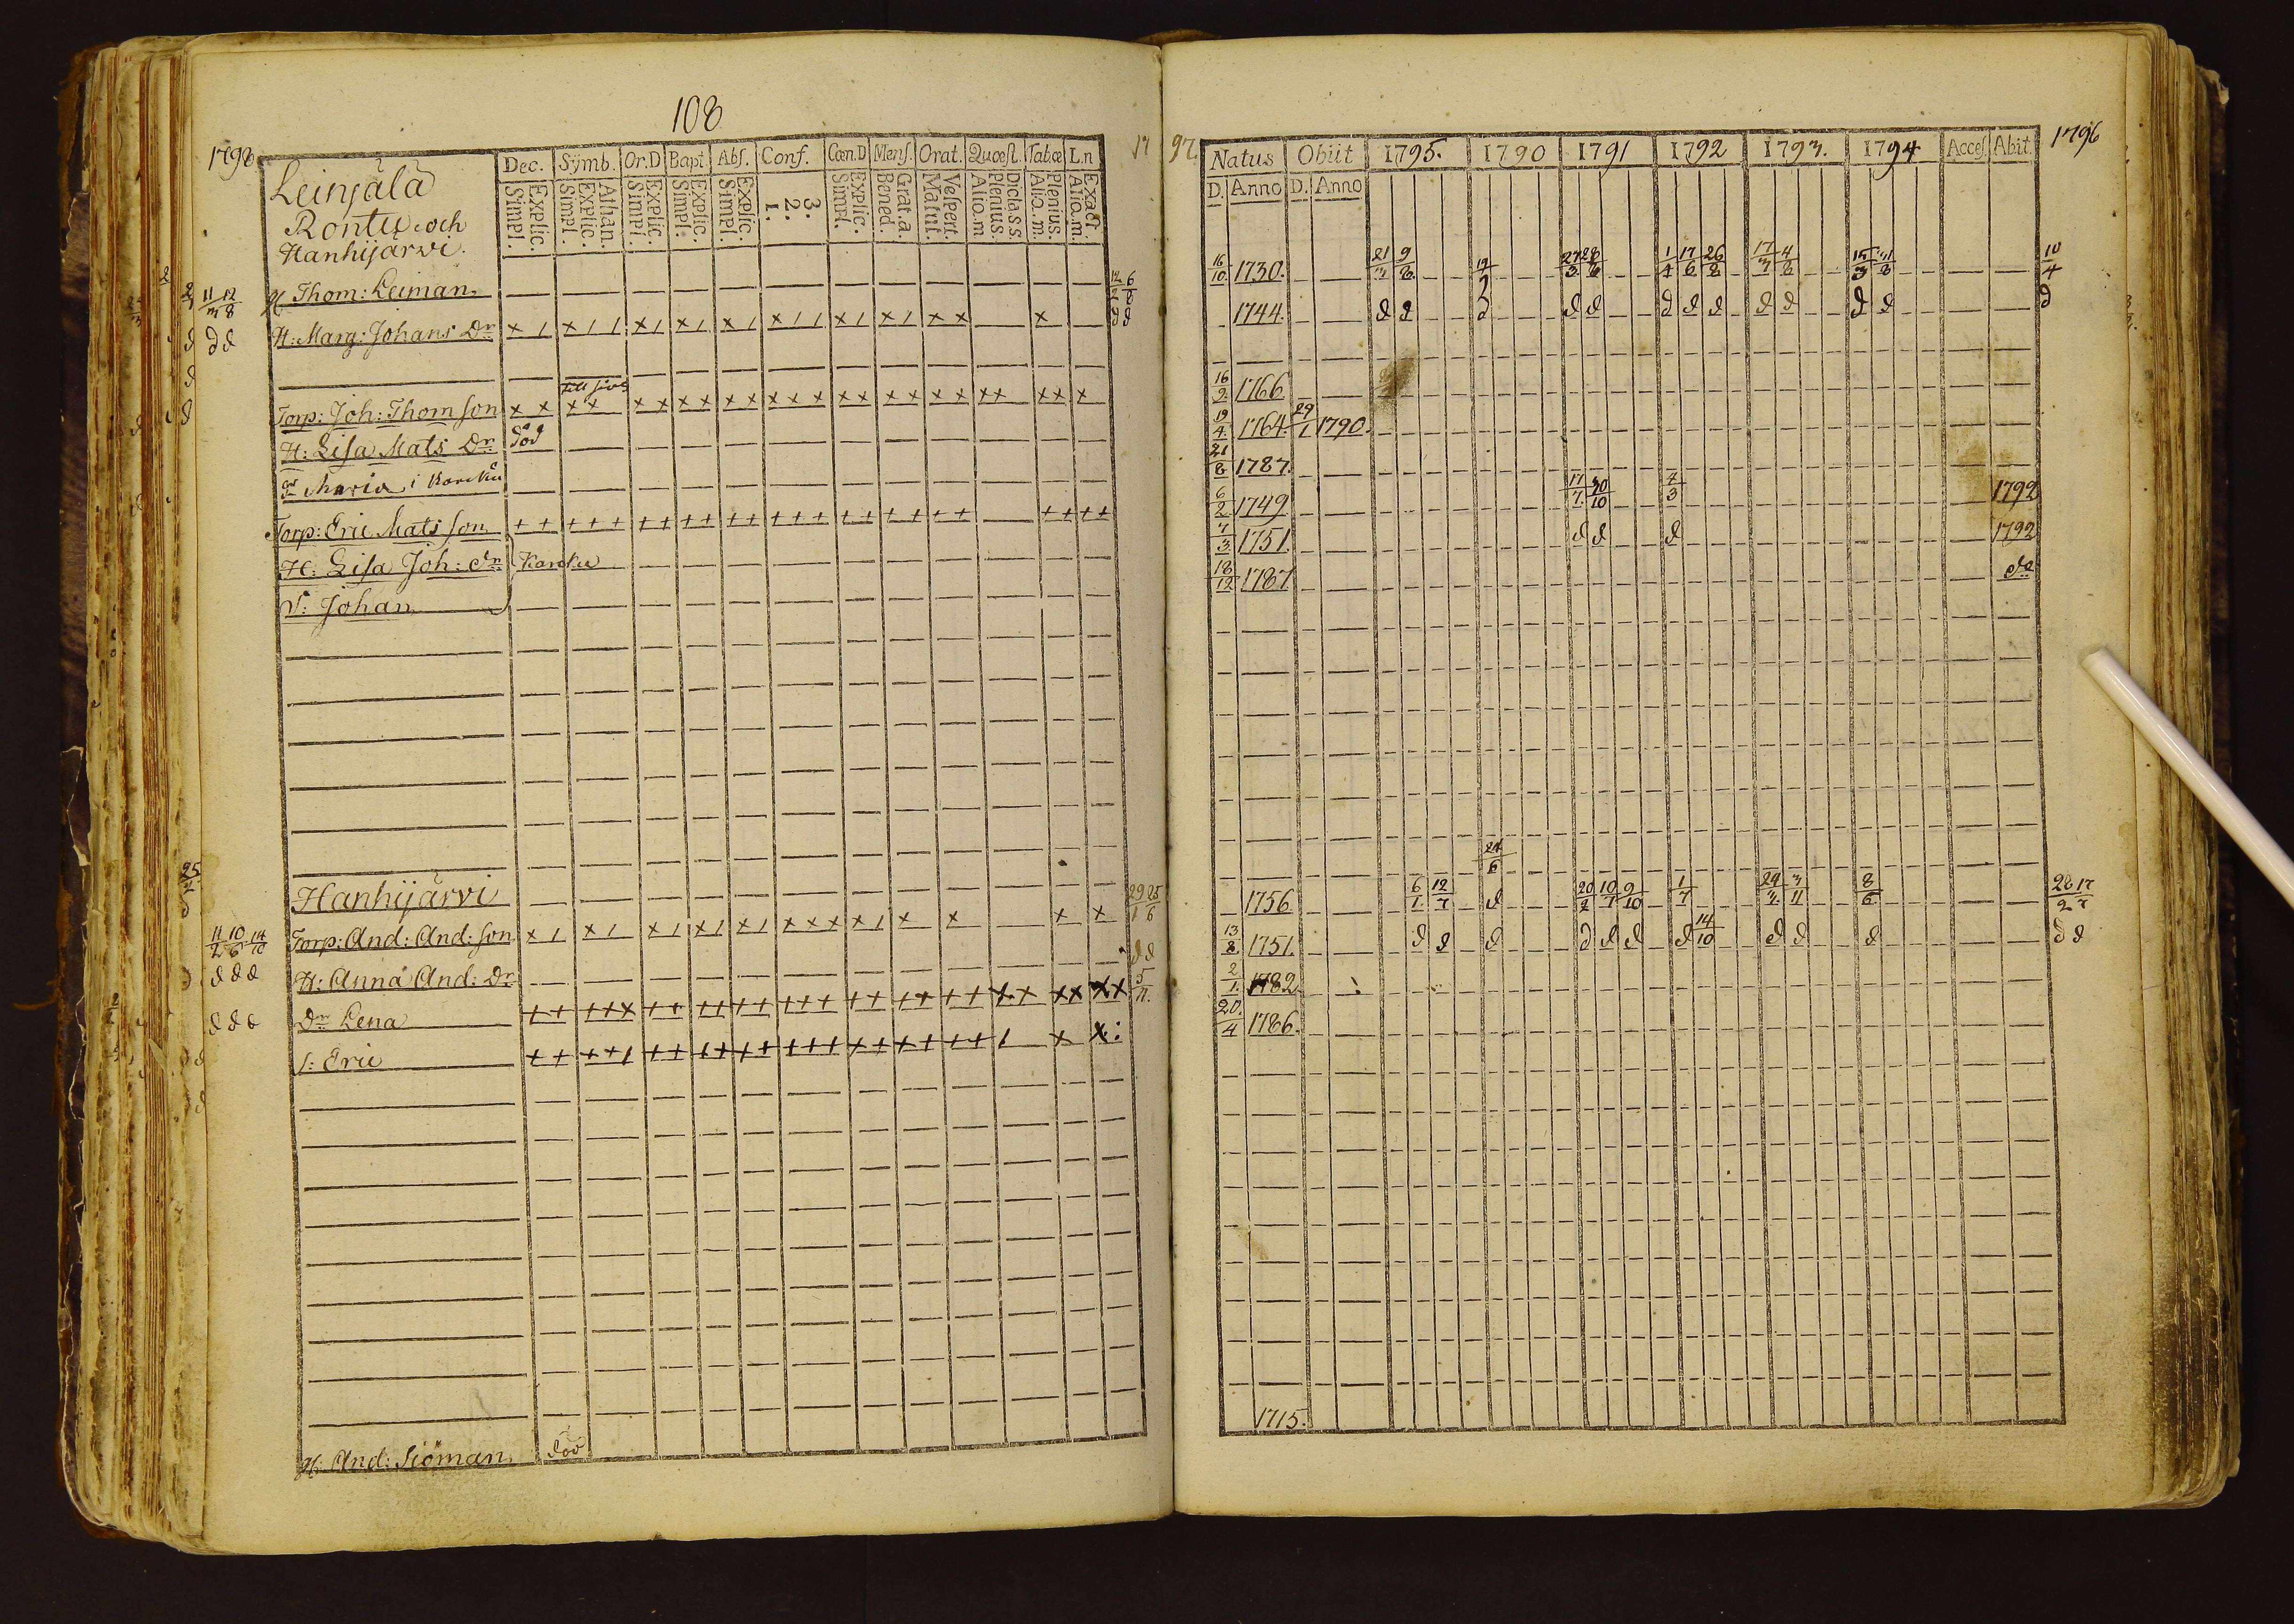 108
1798
Leinjälä
Rontu och
Hanhijärvi.
Dec. Symb. Or.D Bapt. Abs. Conf. Cœn.D Mens. Orat. Quœst. Tabœ L.n
Explic. Simpl. Athan. Explic. Simpl. Explic. Simpl. Explic. Simpl. Explic. Simpl. 3. 2. 1. Explic. Simpl. Grat.a. Bened. Vespert. Matut. Dicta.s.s. Plenius. Aliq.m Plenius. Aliq.m. Exact. Aliq.m.
Thom: Leiman
H: Marg: Johans Dr
Torp: Joh: Thomson
H: Lisa Mats Dr död
dr Maria i Karcku
Torp: Eric Matsson
H: Lisa Joh: dr Karcku
S: Johan
Hanhijärvi
Torp: And: And:son
H: Anna And: Dr
Dr Lena
S: Eric
And: Siöman död
17 97
Natus Obiit 1795. 1790 1791 1792 1793. 1794 Acces. Abit. 1796
D. Anno D. Anno
16/10 1730. 21/3 9/8 17/3 4/8
1744. d d d d d d d d d d d d d
16/2 1766
19/4 1764. 29/1 1790.
21/8 1787.
6/2 1749 17/7 30/10 4/3 1792
7/3 1751. d d d 1792
18/12 1787. do
24/6
1756 6/1 12/7 d 20/2 10/7 9/10 1/7 8/6 28/2 17/7
13/8 1751. d d d d d d d 14/10 d d d d d
2/1 1782
20/4 1786.
1715.